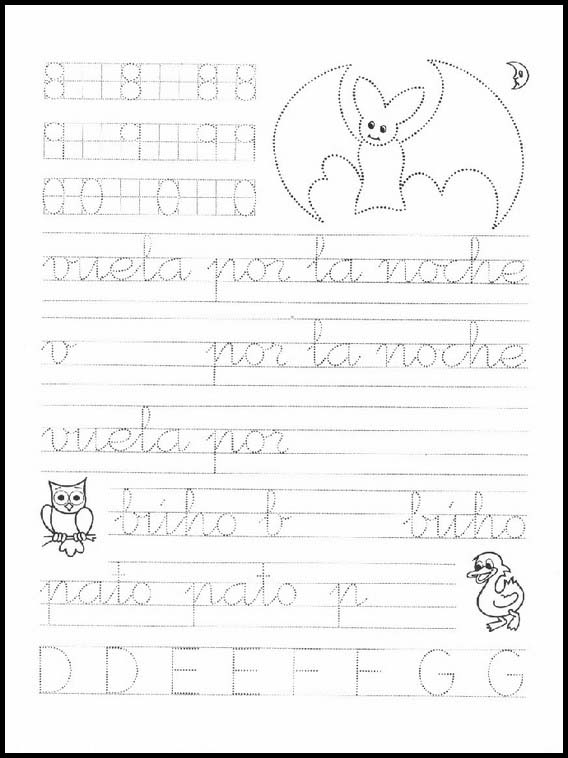 8 8 8 8
9 9 9 9
0 0 0 0
vuela por la noche
v por la noche
vuela por
búho b búho
pato pato p
D D E E F F G G